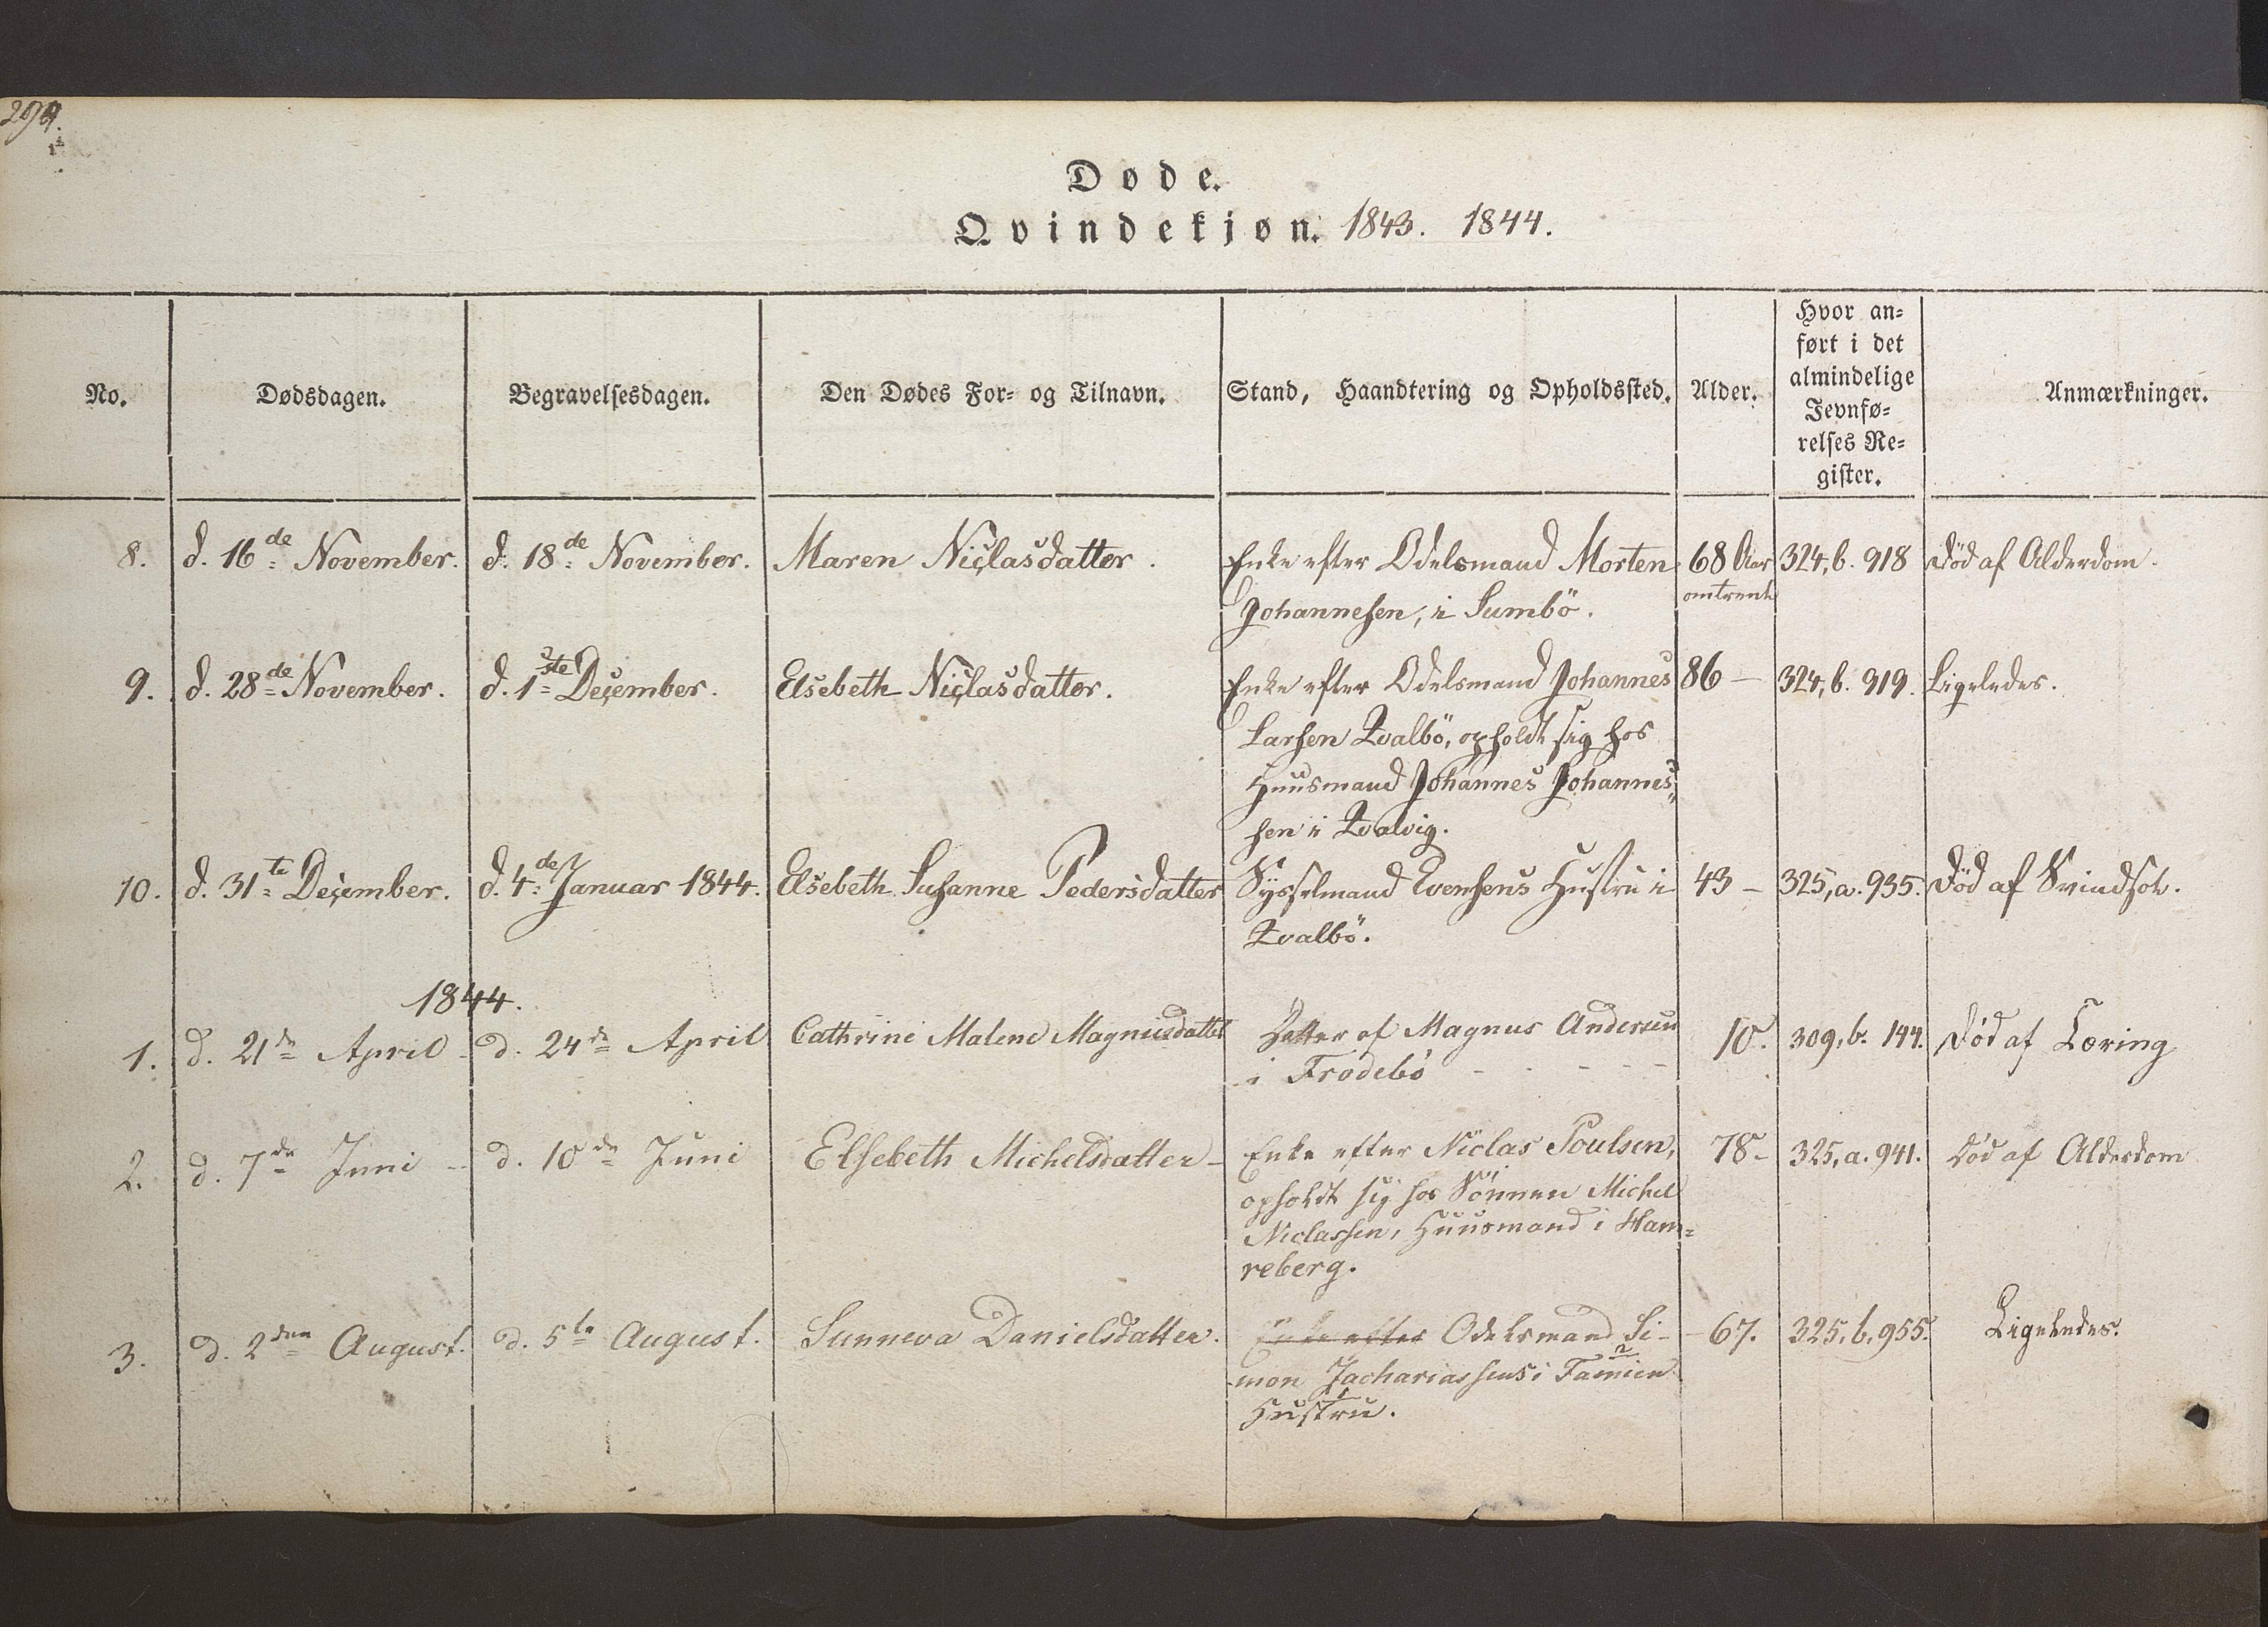 294.
Døde.
Qvindekjøn. 1843. 1844.
No. Dødsdagen. Begravelsesdagen. Den Dødes For- og Tilnavn. Stand, Haandtering og Opholdssted. Alder. Hvor an-
ført i det
almindelige
Jevnfø-
relses Re-
gister. Anmærkninger.
8. d. 16de November. d. 18de November. Maren Niclasdatter. Enke efter Odelsmand Morten 68 Aar 324, b. 918 Död af Alderdom.
Johannesen, i Sumbö. omtrent
9. d. 28de November. d. 1ste December. Elsebeth Niclasdatter. Enke efter Odelsmand Johannes 86 — 324, b. 919. Ligeledes.
Larsen Qvalbö, opholdt sig hos
Huusmand Johannes Johannes„
sen i Qvalvig.
10. d. 31te December. d. 4de Januar 1844. Elsebeth Susanne Pedersdatter Sysselmand Evensens Hustru i 43 — 325, a. 935. Död af Svindsot.
Qvalbö.
1844.
1. d. 21de April d. 24de April Cathrine Malene Magnusdatter Datter af Magnus Andersen 10. 309, b. 144. Död af Tæring
i Frodebö - - - - -
2. d. 7de Juni d. 10de Juni Elsebeth Michelsdatter Enke efter Niclas Poulsen, 78 - 325, a. 941. Död af Alderdom
opholdt sig hos Sönnen Michel
Niclassen, Huusmand i Ham=
reberg.
3. d. 2den August. d. 5te August. Sunneva Danielsdatter. Enke efter Odelsmand Si- 67. 325, b. 955. Ligeledes.
mon Zachariassens i Famien
Hustru.